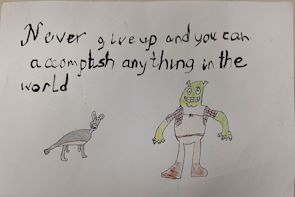 Never give up and you can
accomplish anything in the
world